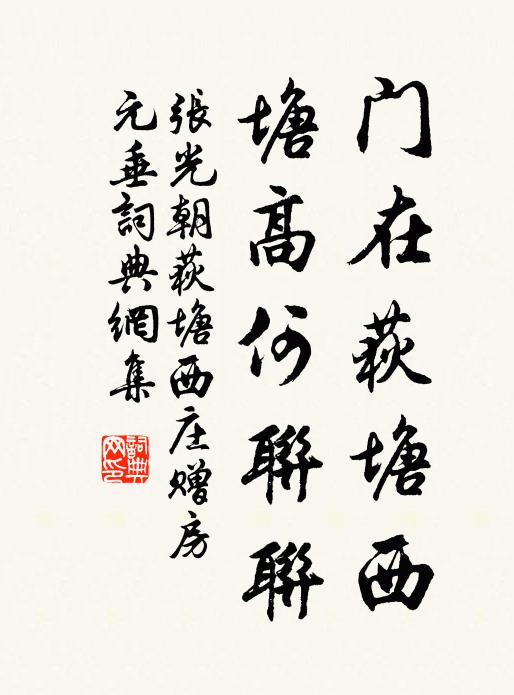 门在荻塘西
塘高何聯聯
張光朝荻塘西庄赠房
元垂詞典網集
詞典网印